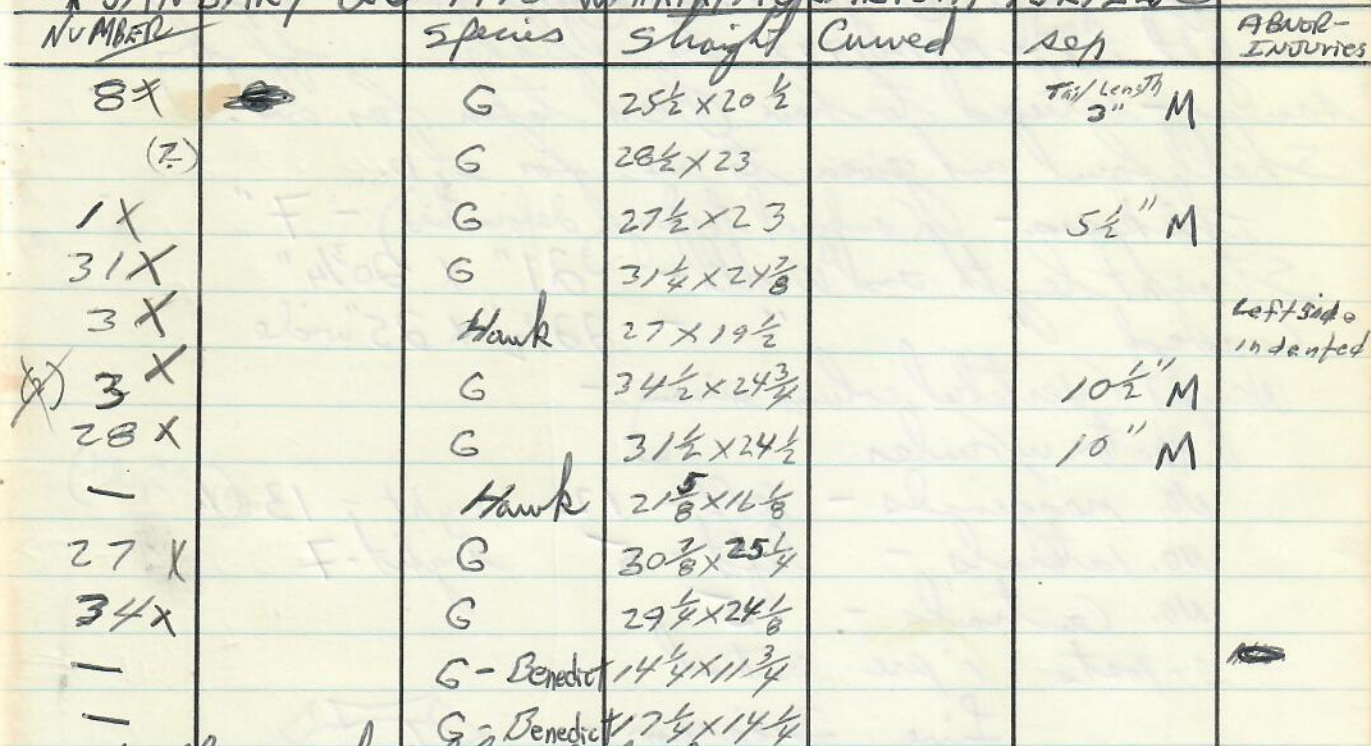 NUMBER Species Straight Curved sep ABNOR-
INJURIES
8X G 25½ x 20½ Tail Length 3" M
(?) G 28½ x 23
1X G 27½ x 23 5½" M
31X G 31¼ x 24⅞
3X Hawk 27 x 19½ Left side
indented
3X G 34½ x 24¾ 10½" M
28X G 31½ x 24½ 10" M
— Hawk 21⅝ x 16⅛
27X G 30⅞ x 25¼
34x G 29¼ x 24⅛
— G - Benedict 14¼ x 11¾
— G - Benedict 17¼ x 14¼